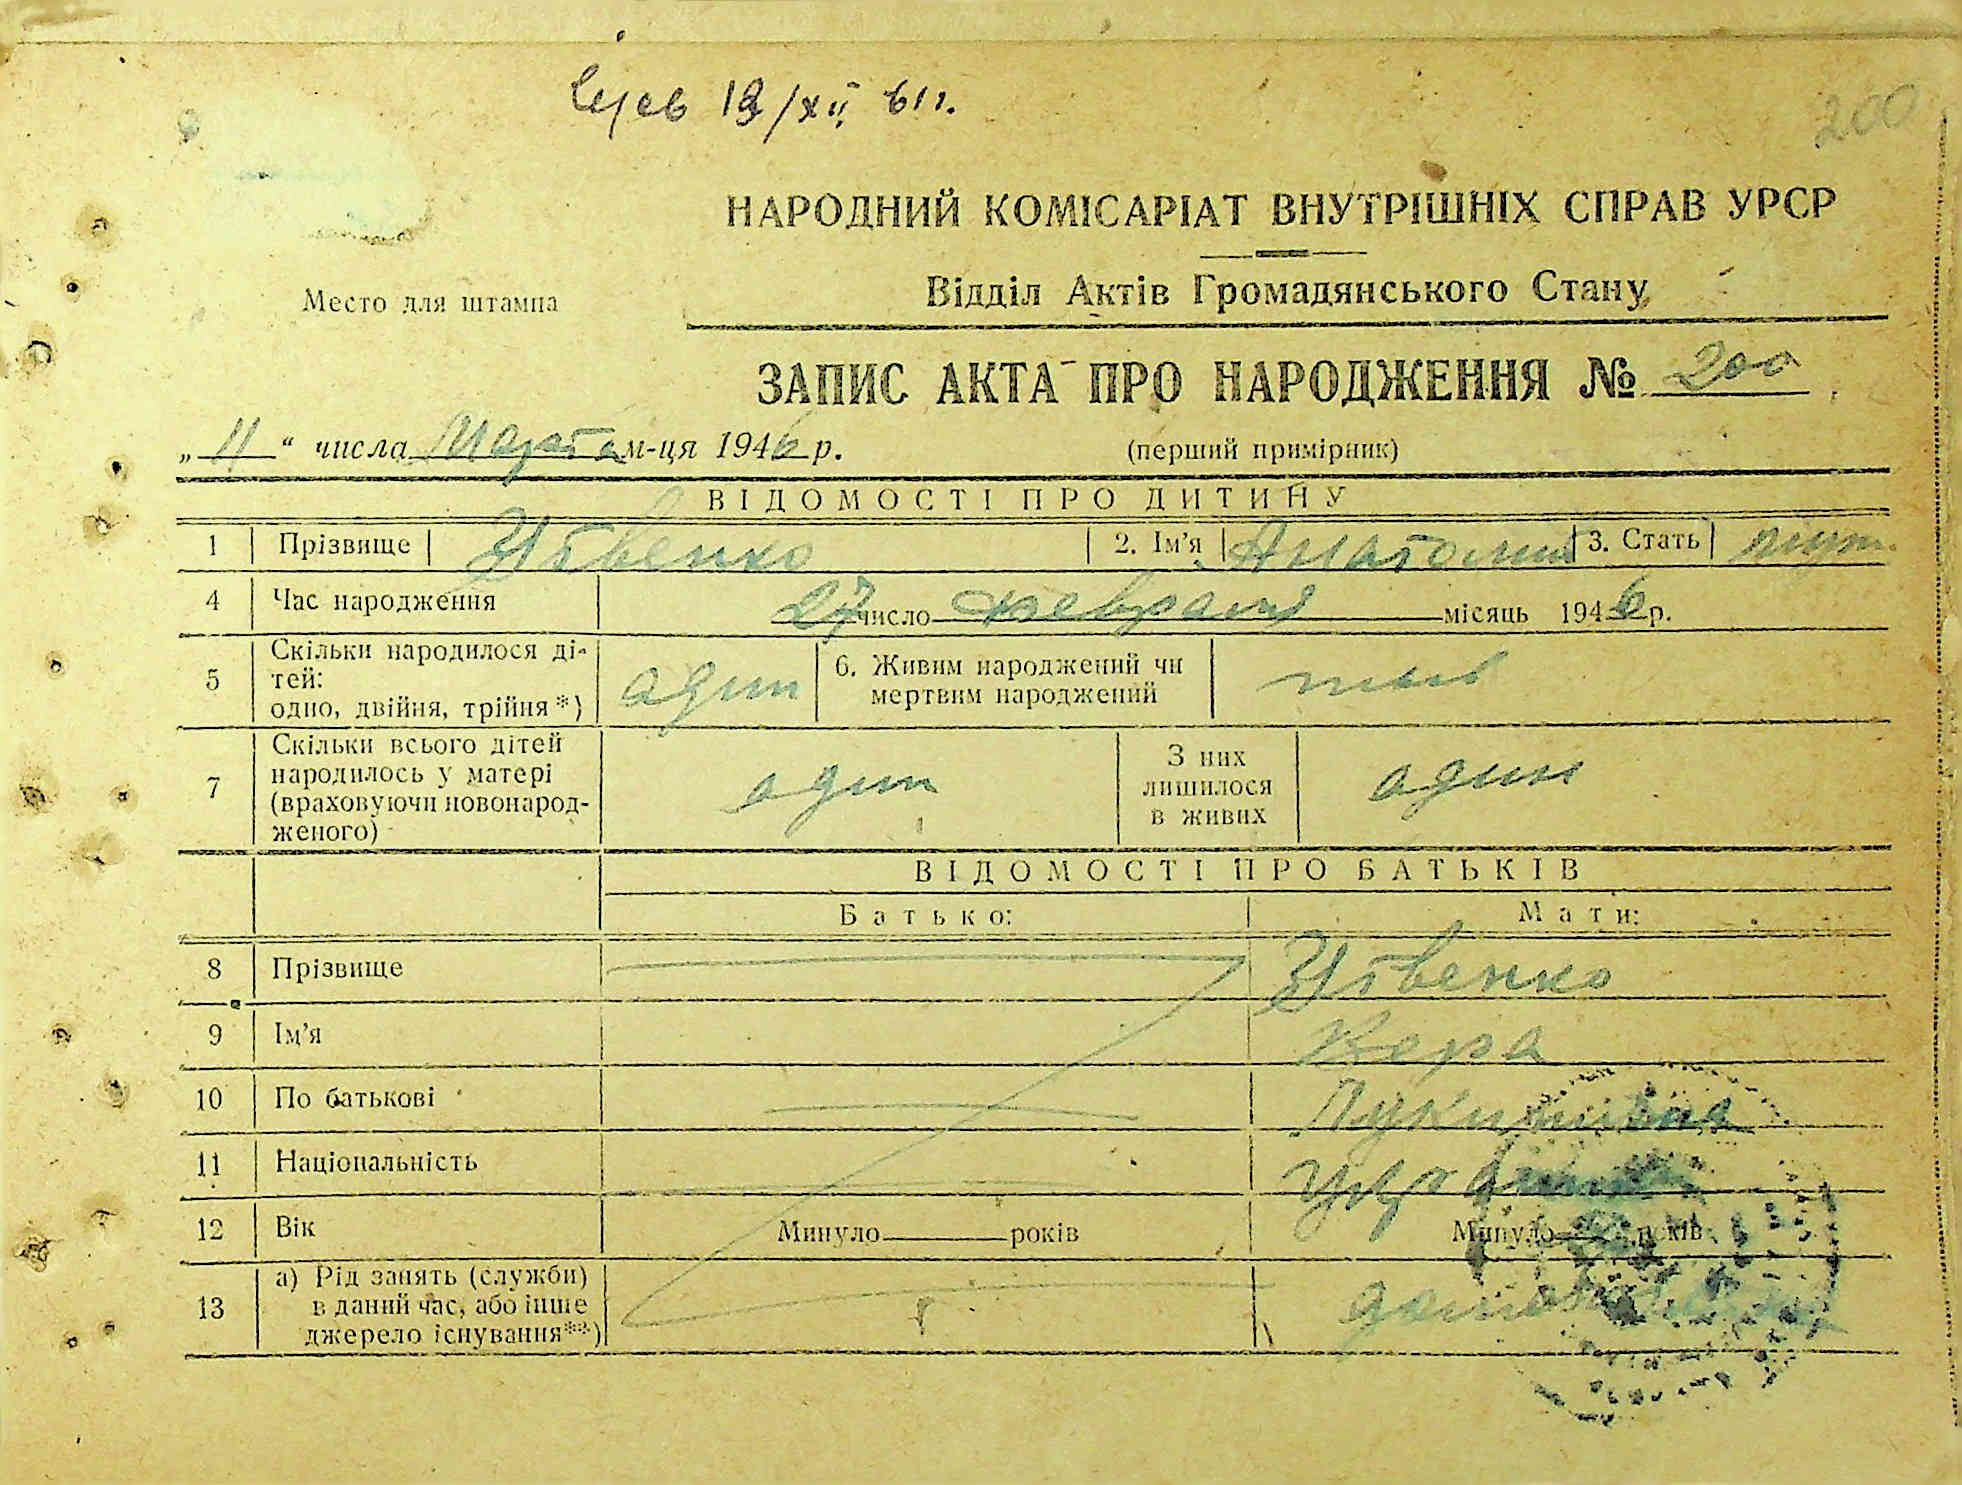 19/XII 61 г.
200
НАРОДНИЙ КОМІСАРІАТ ВНУТРІШНІХ СПРАВ УРСР
Відділ Актів Громадянського Стану
Место для штампа
ЗАПИС АКТА ПРО НАРОДЖЕННЯ № 200
„11“ числа Марта м-ця 1946 р. (перший примірник)
ВІДОМОСТІ ПРО ДИТИНУ
1 Прізвище 2. Ім’я Анатолий 3. Стать муж.
4 Час народження 27 число февраля місяць 1946 р.
5 Скільки народилося ді-
тей:
одно, двійня, трійня*) один 6. Живим народжений чи
мертвим народжений жив
7 Скільки всього дітей
народилось у матері
(враховуючи новонарод-
женого) один З них
лишилося
в живих один
ВІДОМОСТІ ПРО БАТЬКІВ
Батько: Мати:
8 Прізвище
9 Ім’я Вера
10 По батькові
11 Національність
12 Вік Минуло років Минуло років
13 а) Рід занять (служби)
в даний час, або інше
джерело існування**)